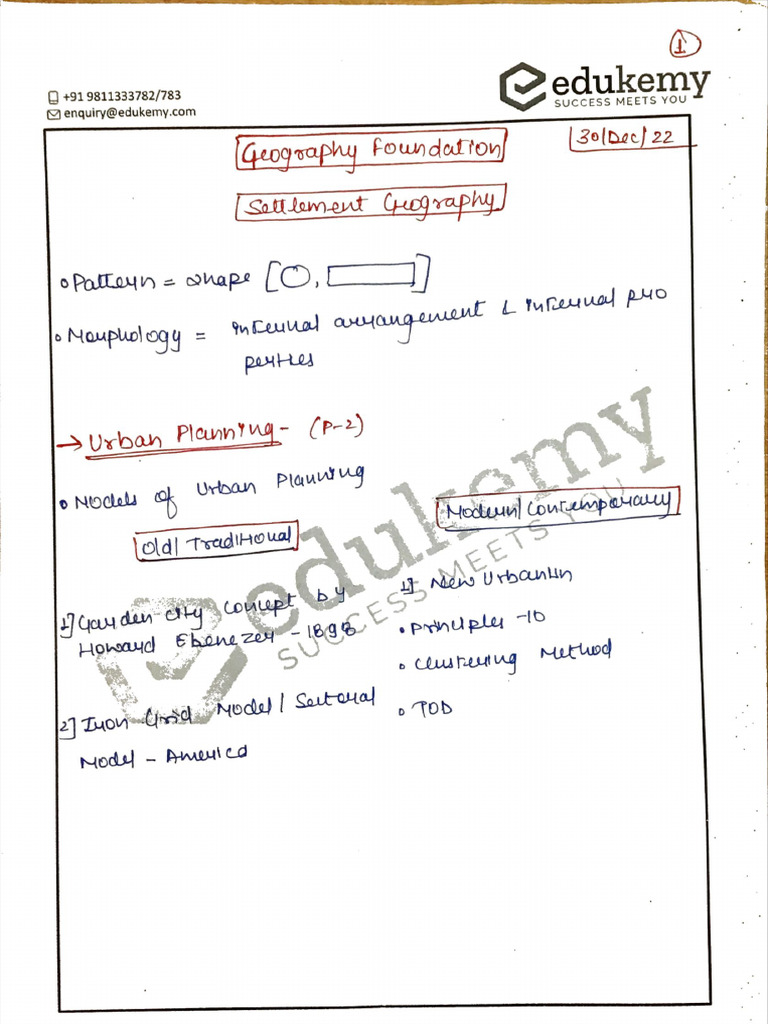 1
+91 9811333782/783
enquiry@edukemy.com
edukemy
SUCCESS MEETS YOU
30/Dec/22
Geography Foundation
Settlement Geography
• Pattern = Shape [ , ]
• Morphology = internal arrangement & internal pro
perties
→ Urban Planning - (P-2)
• Models of Urban Planning
Old/Traditional
Modern/Contemporary
1] Garden city concept by
Howard Ebenezer - 1898
2] Iron Grid Model / Sectoral
Model - America
1] New Urbanism
• Principles - 10
• Clustering Method
• TOD
edukemy
SUCCESS MEETS YOU